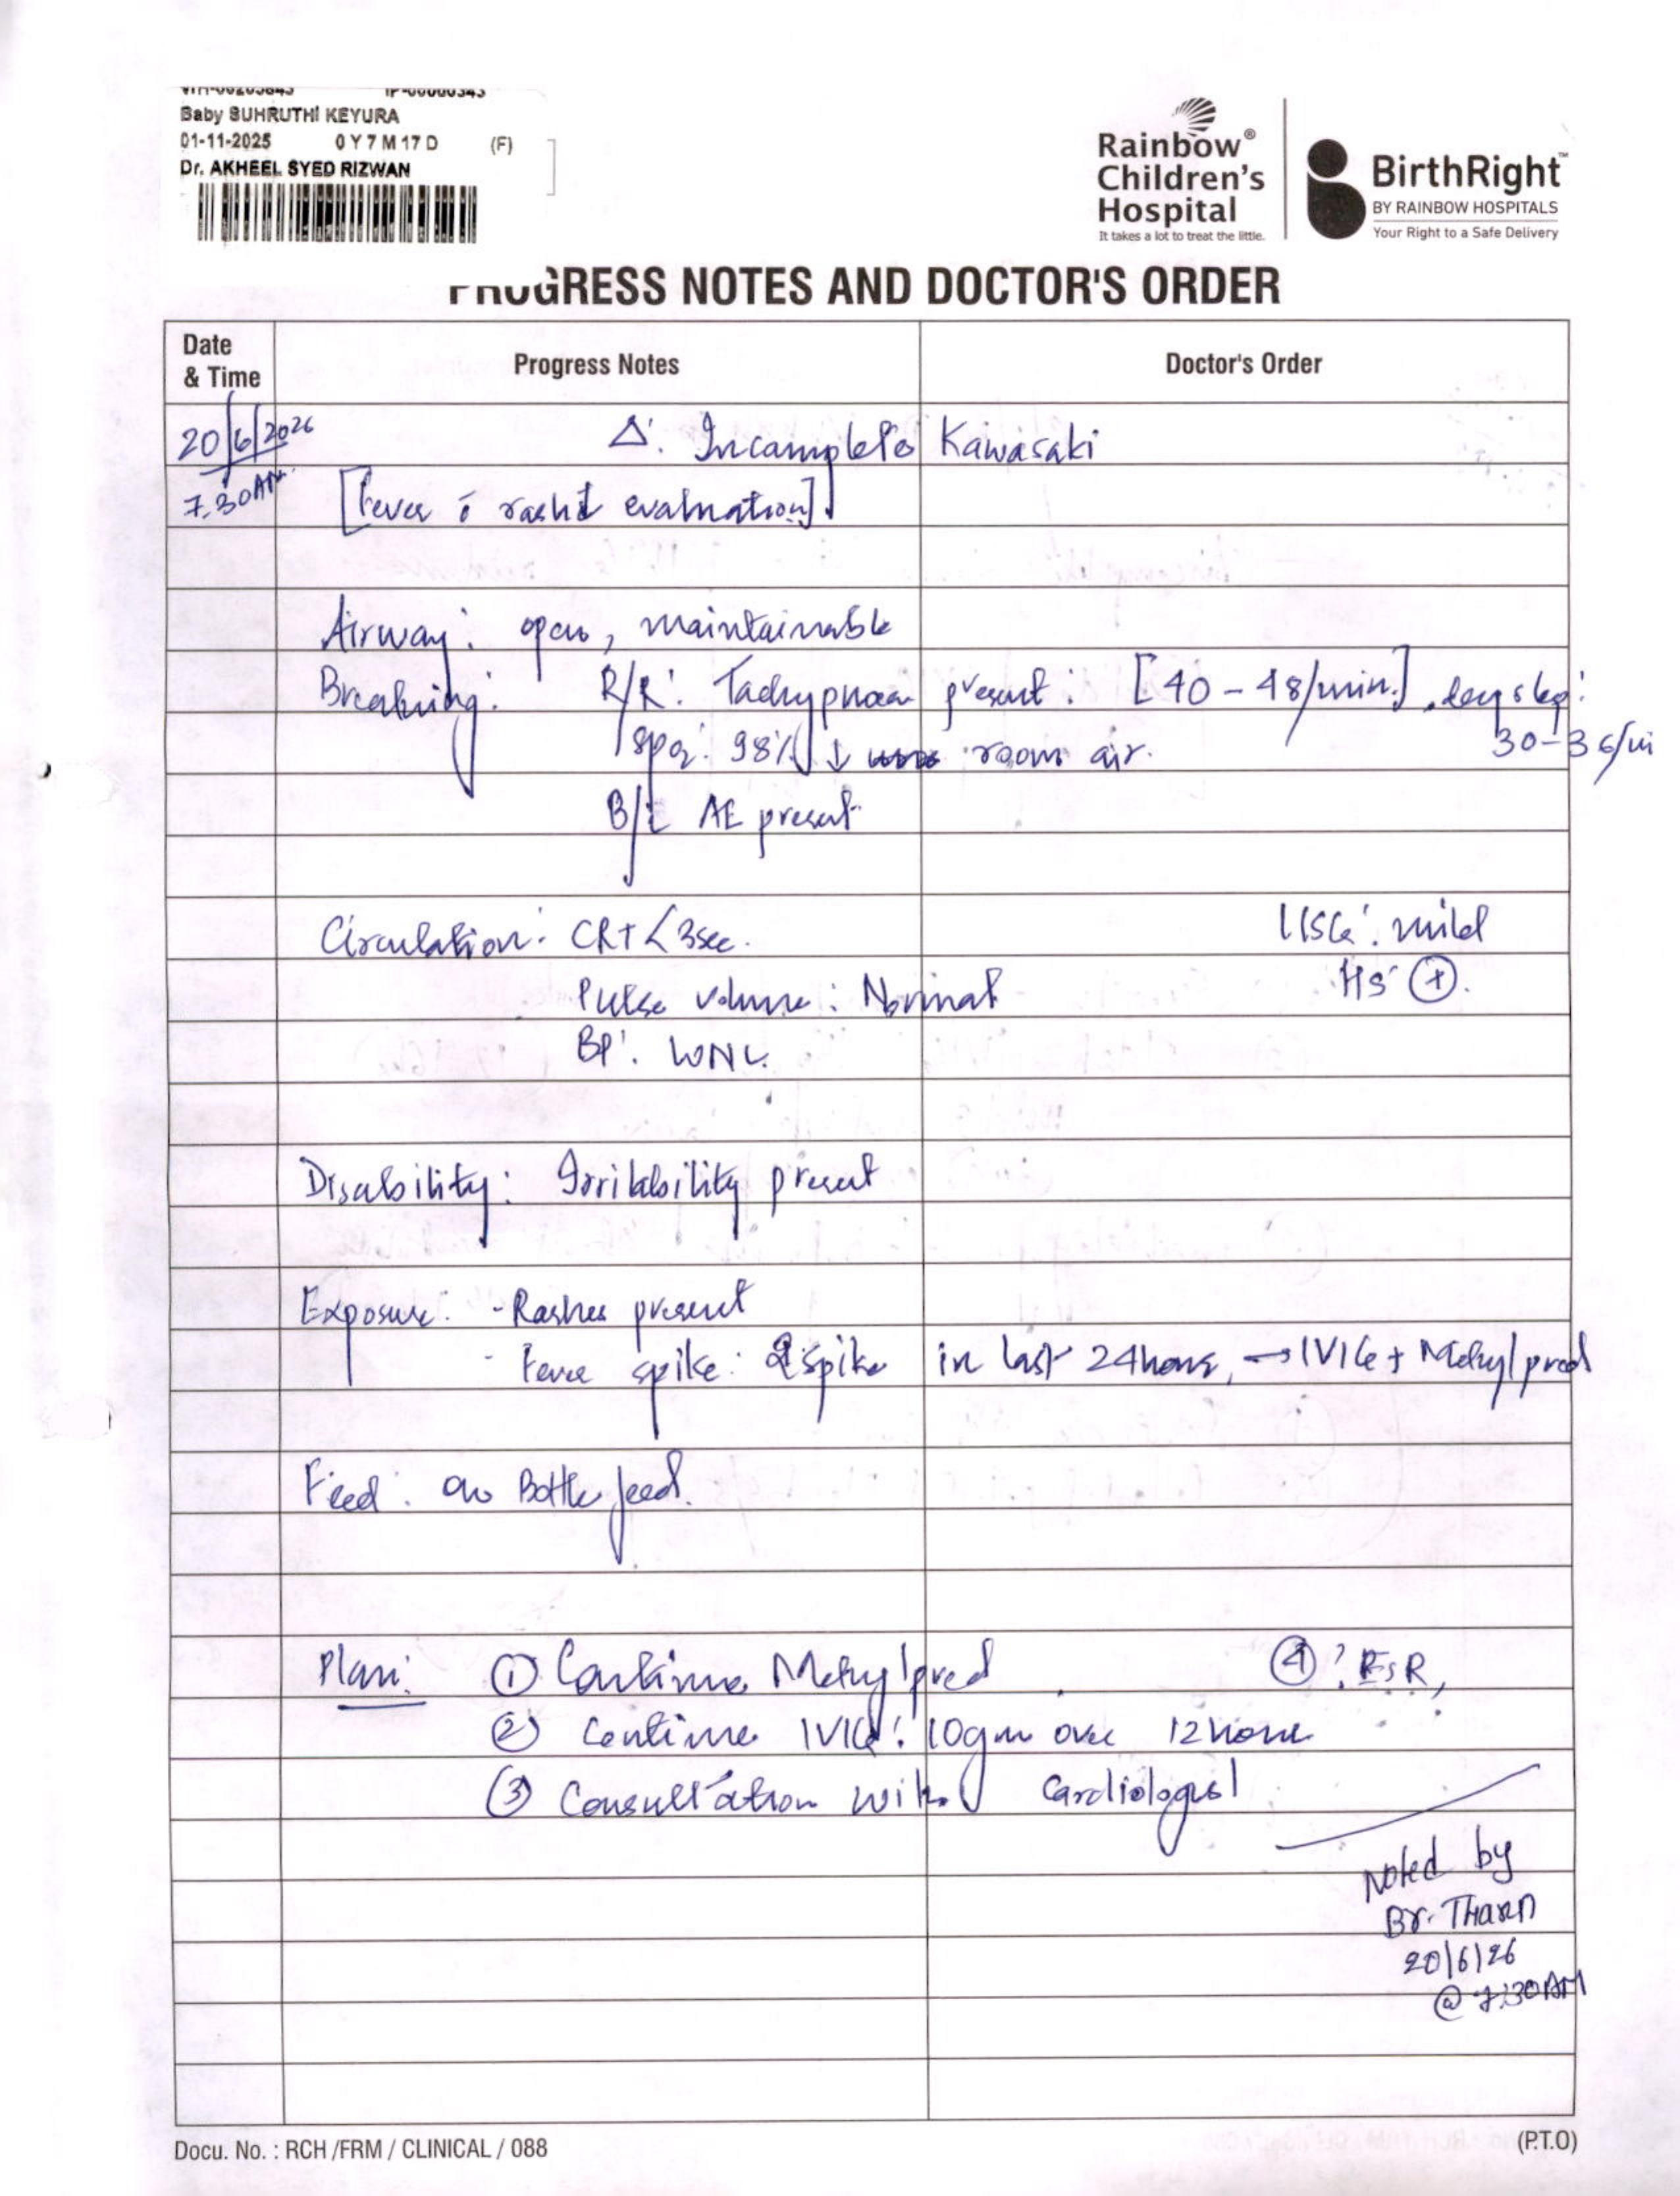 Baby SUHRUTHI KEYURA
01-11-2025 0 Y 7 M 17 D (F)
Dr. AKHEEL SYED RIZWAN
Rainbow®
Children's
Hospital
It takes a lot to treat the little.
BirthRight™
BY RAINBOW HOSPITALS
Your Right to a Safe Delivery
PROGRESS NOTES AND DOCTOR'S ORDER
Date & Time Progress Notes Doctor's Order
20/6/2026 Δ: Incomplete Kawasaki
7.30AM [Fever c̄ rash evaluation]
Airway: open, maintainable
Breathing: R/R: Tachypnoea present: [40-48/min.]
30-36/mi
SpO2: 98% ↓ room air.
B/L AE present
Circulation: CRT <3sec. USG: mild
Pulse volume: Normal HS (+).
BP: WNL
Disability: Irritability present
Exposure: - Rashes present
- Fever spike: 2 spike in last 24hours, → IVIG + Methylpred
Feed: on Bottle feed.
Plan: ① Continue Methylpred ④ ? ESR,
② Continue IVIG: 10gm over 12 hours
③ Consultation with Cardiologist
Noted by
Br. Tharun
20/6/26
@ 7:30AM
Docu. No. : RCH /FRM / CLINICAL / 088 (P.T.O)